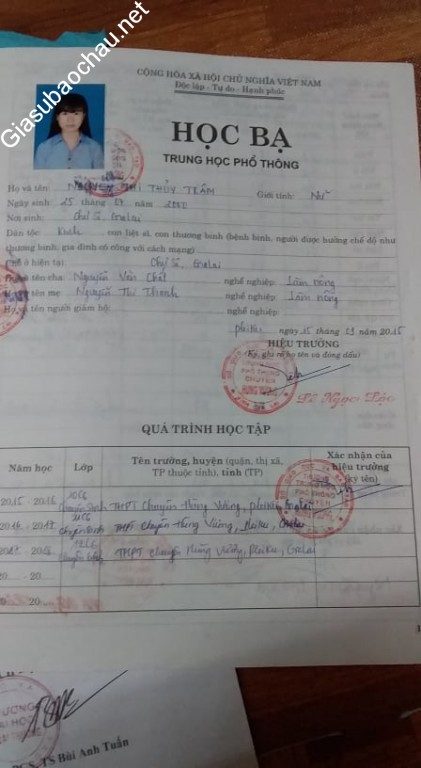 Giasubaochau.net
CỘNG HÒA XÃ HỘI CHỦ NGHĨA VIỆT NAM
Độc lập - Tự do - Hạnh phúc
HỌC BẠ
TRUNG HỌC PHỔ THÔNG
Họ và tên: THÙY TRÂM Giới tính: Nữ
Ngày sinh: 25 tháng năm
Nơi sinh: Chư Sê, Gialai
Dân tộc: Kinh con liệt sĩ, con thương binh (bệnh binh, người được hưởng chế độ như
thương binh, gia đình có công với cách mạng)
Chỗ ở hiện tại: Chư Sê, Gialai
Họ và tên cha: Nguyễn Văn Chất nghề nghiệp: Làm nông
Họ và tên mẹ: Nguyễn Thị Thanh nghề nghiệp: Làm nông
Họ và tên người giám hộ: nghề nghiệp:
Pleiku ngày 15 tháng 09 năm 2015
HIỆU TRƯỞNG
(Ký, ghi rõ họ tên và đóng dấu)
CHUYÊN
HÙNG VƯƠNG
Ngọc Lộc
QUÁ TRÌNH HỌC TẬP
Năm học Lớp Tên trường, huyện (quận, thị xã, TP thuộc tỉnh), tỉnh (TP) Xác nhận của hiệu trưởng (ký tên)
2015 - 2016 10C6 THPT Chuyên Hùng Vương, Pleiku, Gialai
2016 - 2017 11C6 THPT Chuyên Hùng Vương, Pleiku, Gialai
2017 - 2018 12C6 THPT Chuyên Hùng Vương, Pleiku, Gialai
20..... - 20.....
20..... - 20.....
1
PGS. TS Bùi Anh Tuấn